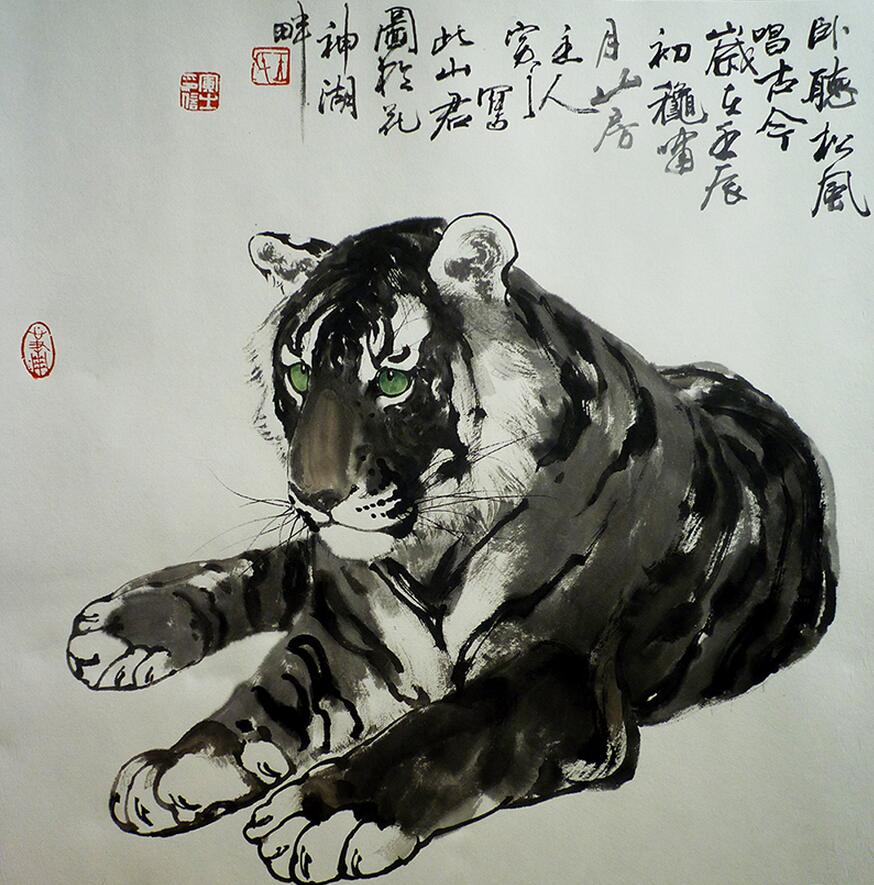 卧聽松風
唱古今
歲在壬辰
初龝嘯
月山房
主人
寫
此山君
圖於花
神湖
畔